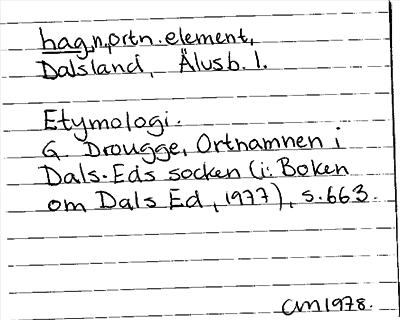 hag, n, ortn. element,
Dalsland, Älvsb. l.
Etymologi.
G Drougge, Ortnamnen i
Dals-Eds socken (i: Boken
om Dals Ed, 1977), s. 663.
CM 1978.